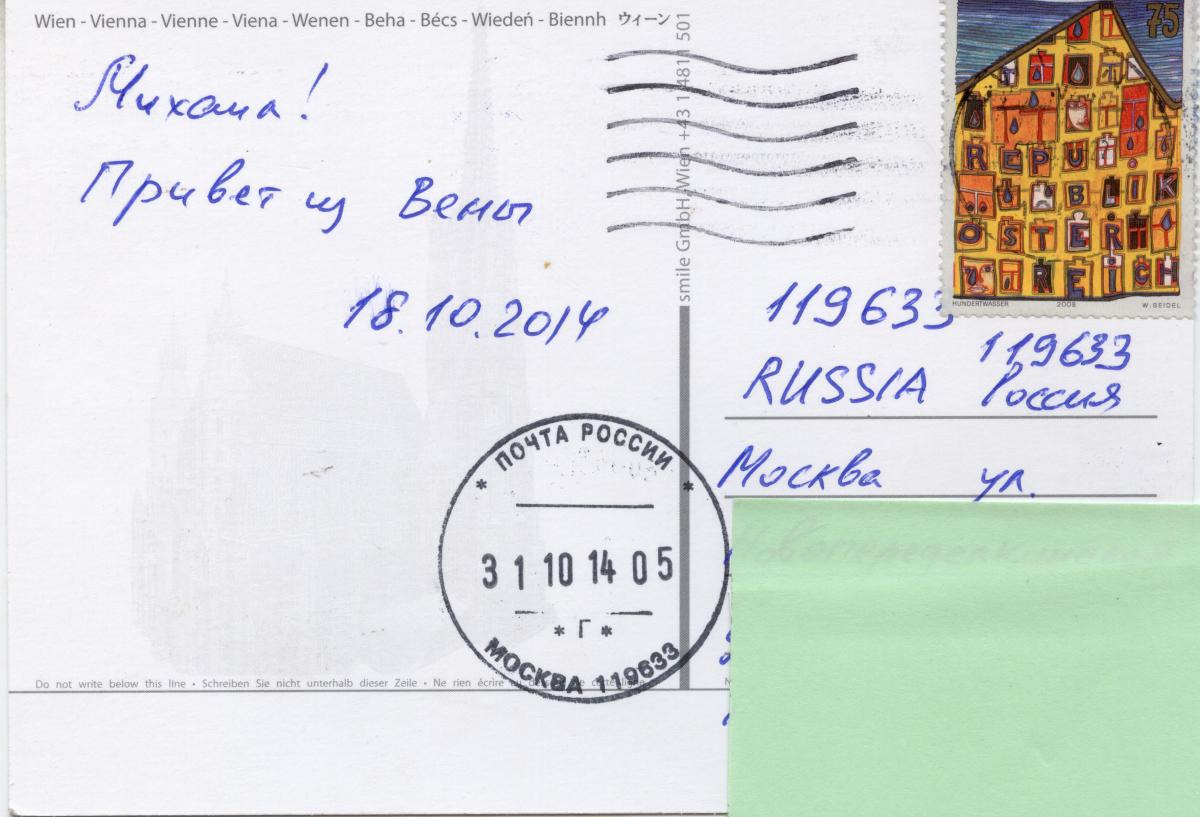 Wien - Vienna - Vienne - Viena - Wenen - Beha - Bécs - Wiedeń - Biennh ウィーン
Михаил!
Привет из Вены
18.10.2014
smile GmbH Wien +43 1 4811 501
75
REPU
BLIK
ÖSTER
REICH
HUNDERTWASSER 2008 W. SEIDEL
119633
RUSSIA
119633
Россия
Москва ул.
ПОЧТА РОССИИ
31 10 14 05
* Г *
МОСКВА 119633
Do not write below this line • Schreiben Sie nicht unterhalb dieser Zeile • Ne rien écrire